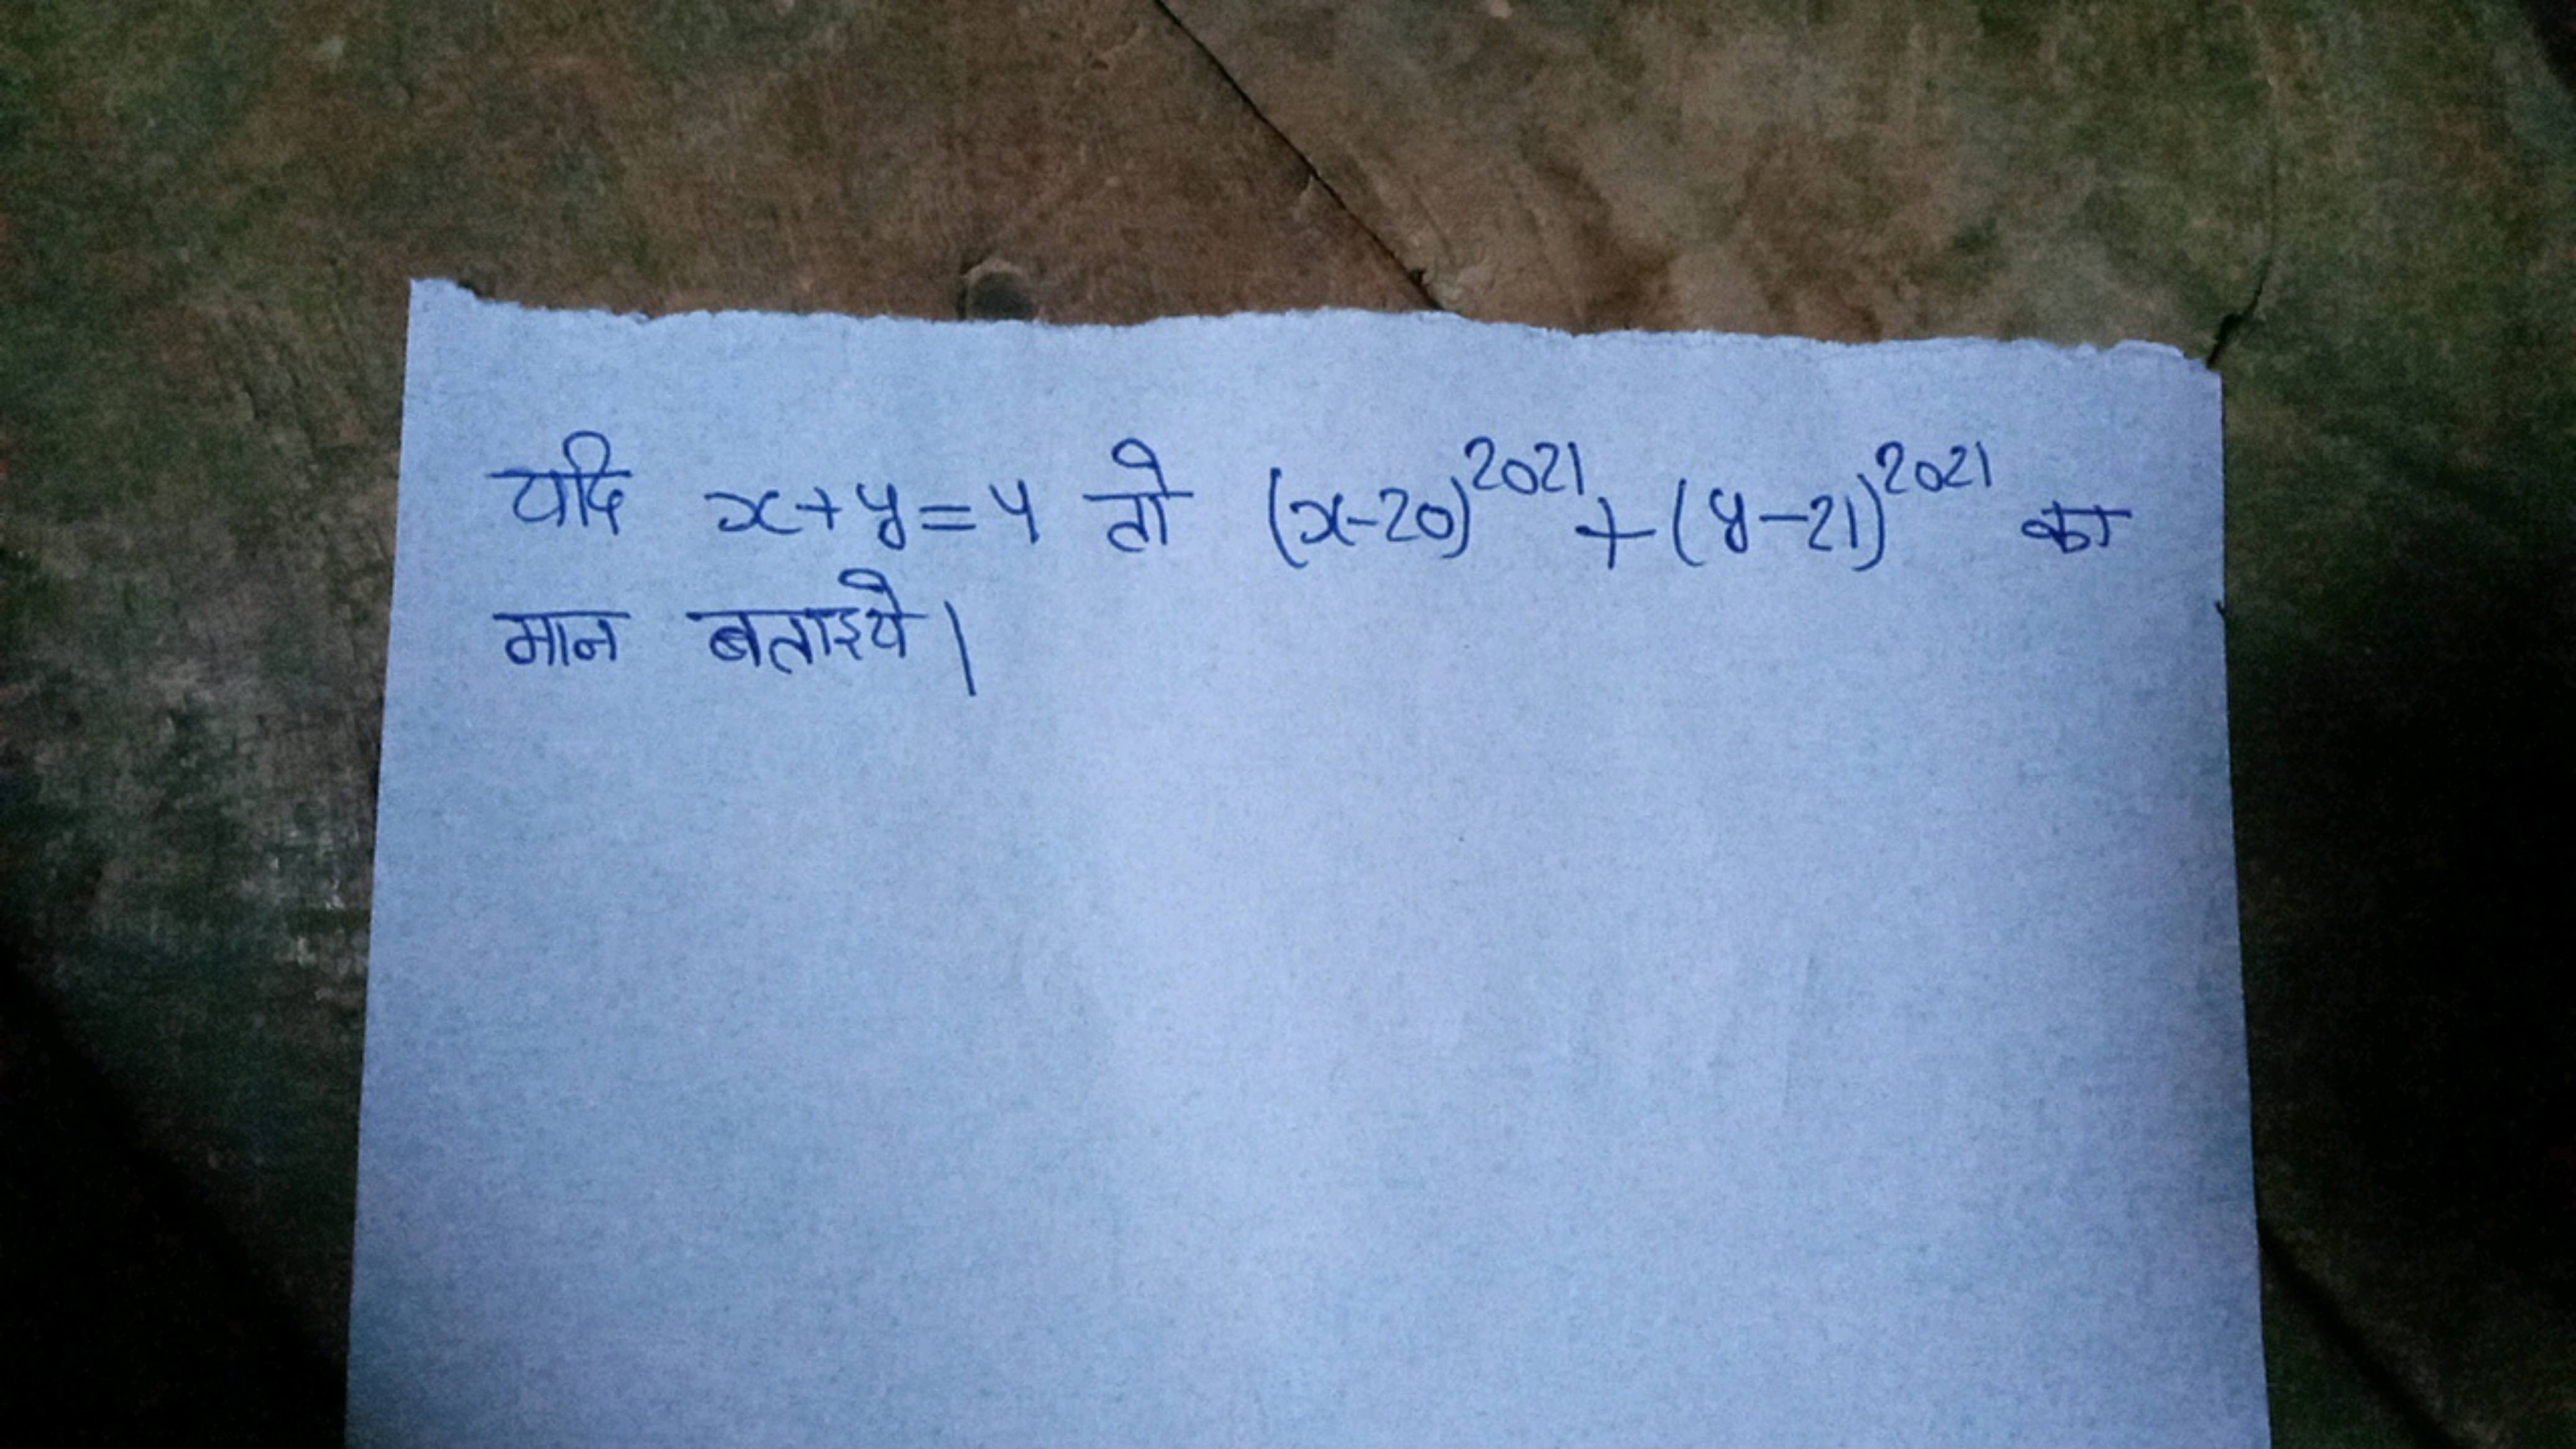 यदि x+y=4 तो (x-20)^2021+(y-21)^2021 का
मान बताइये।